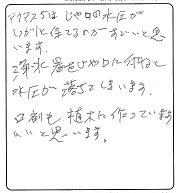 アクアス5はじゃ口の水圧が
いがいと保てるのがすごいと思
います。
浄水器をじゃ口に付ると
水圧が落ちてしまいます。
も植木に作っています
いいと思います。